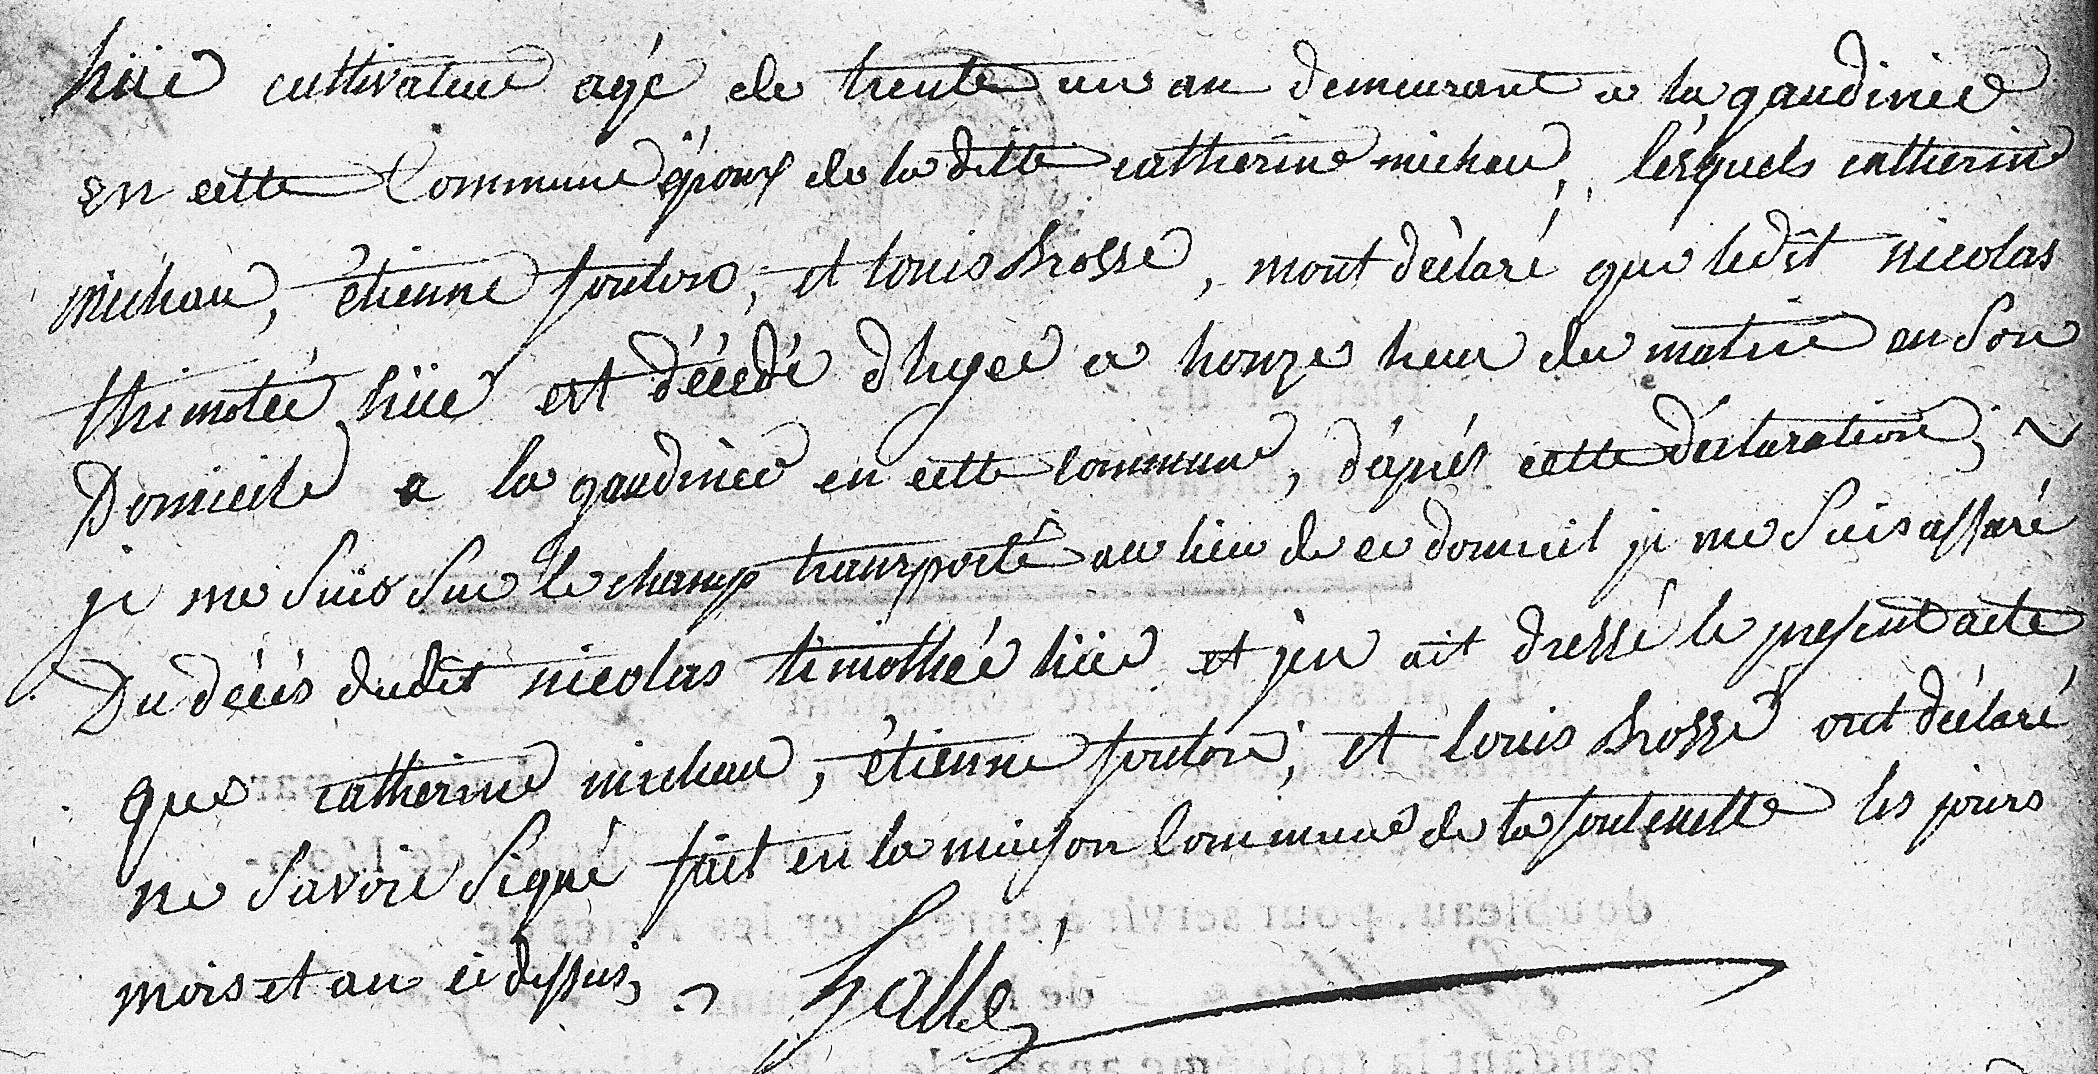 hüe cultivateur agé de trente un an demeurant a la gaudiniée
en cette Commune époux de la ditte catherine micheau, lesquels catherine
micheau, étienne fouton, et louis Brossé, mont déclaré que ledit nicolas
thimotée hüe est décédé dhyer a honze heur du matin en Son
Domicile a la gaudiniée en cette commune, d'aprés cette déclaration,
je me Suis Sur le champ transporté au lieu de ce domicil je me Suis assuré
Du décés dudit nicolas timothée hüe et j'en ait dressé le present acte
que catherine micheau, étienne fouton, et louis Brossé ont déclaré
ne Savoir Signé fait en la maison Commune de la fontenelle les jours
mois et an ci dessus,